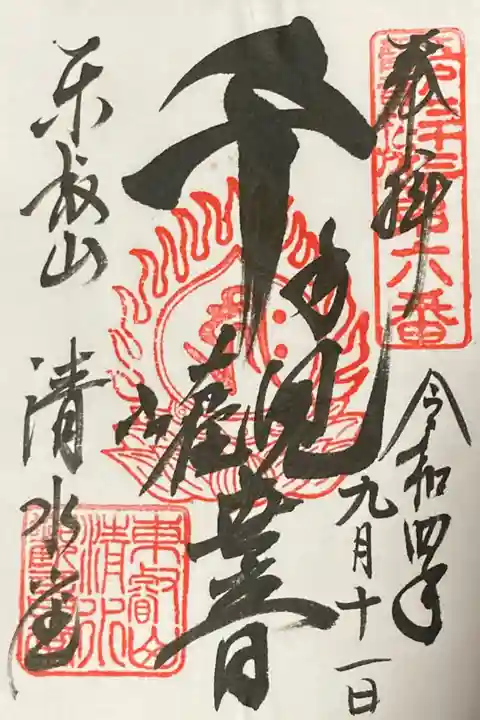 奉拝
第六番
令和四年
九月十一日
千手観世音
東叡山
清水堂
東叡山
清水
観音堂